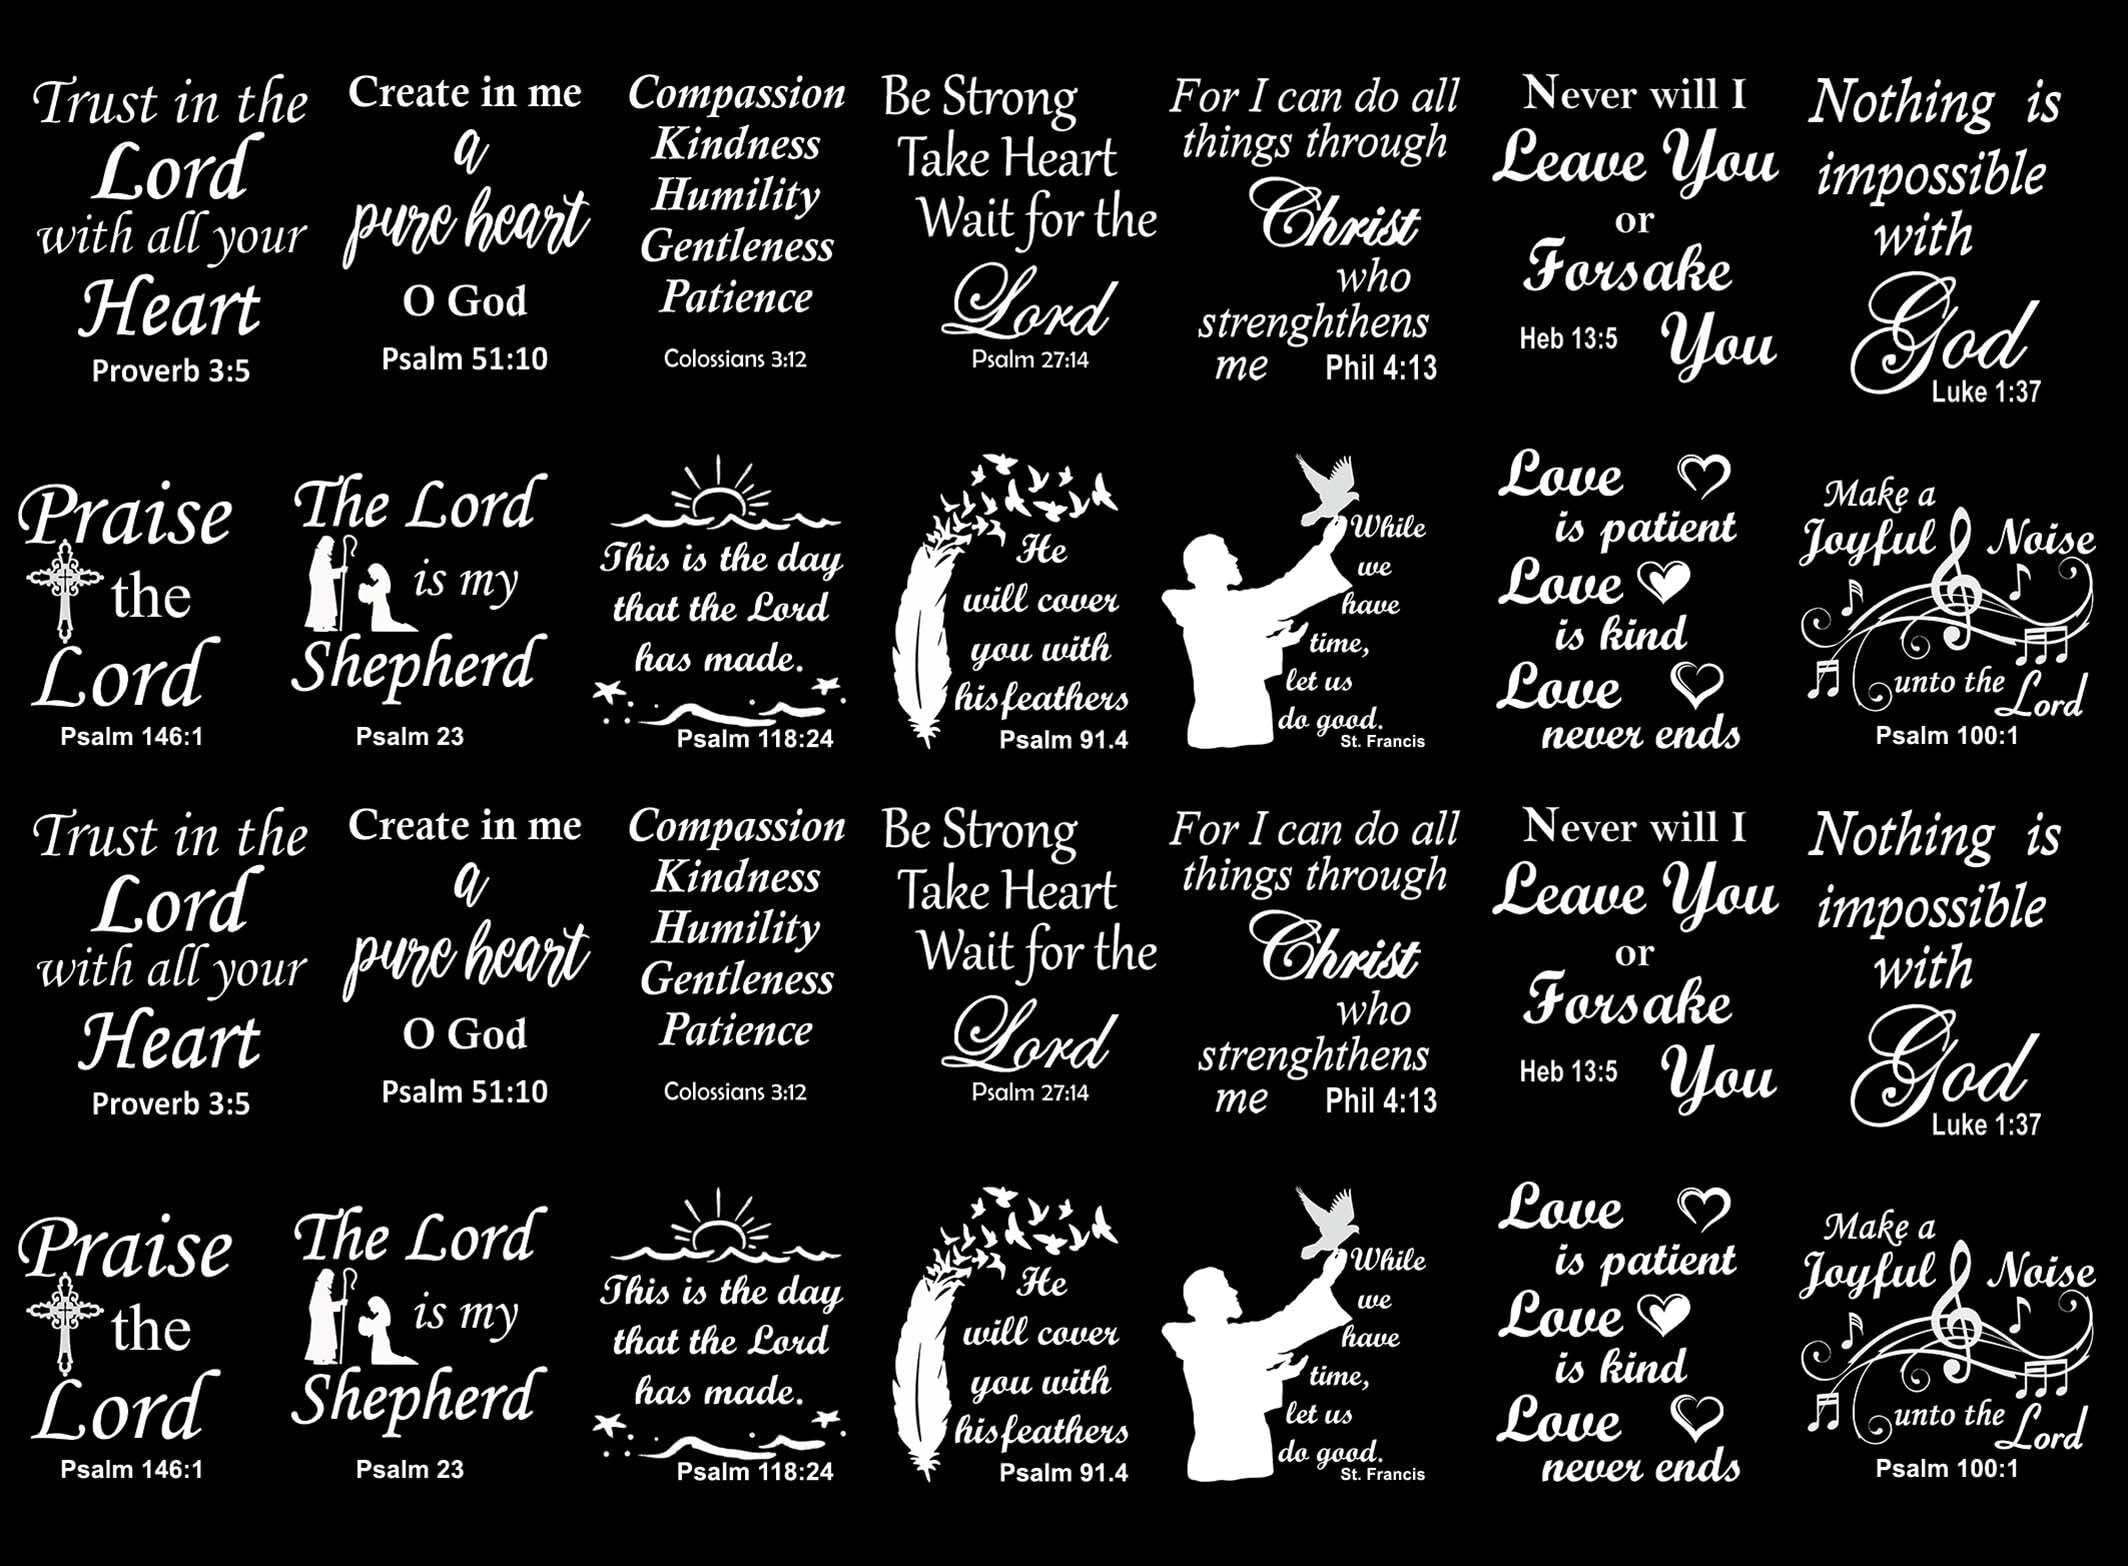 Trust in the
Lord
with all your
Heart
Proverb 3:5
Create in me
a
pure heart
O God
Psalm 51:10
Compassion
Kindness
Humility
Gentleness
Patience
Colossians 3:12
Be Strong
Take Heart
Wait for the
Lord
Psalm 27:14
For I can do all
things through
Christ
who
strenghthens
me Phil 4:13
Never will I
Leave You
or
Forsake
Heb 13:5 You
Nothing is
impossible
with
God
Luke 1:37
Praise
the
Lord
Psalm 146:1
The Lord
is my
Shepherd
Psalm 23
This is the day
that the Lord
has made.
Psalm 118:24
He
will cover
you with
his feathers
Psalm 91.4
While
we
have
time,
let us
do good.
St. Francis
Love
is patient
Love
is kind
Love
never ends
Make a
Joyful Noise
unto the
Lord
Psalm 100:1
Trust in the
Lord
with all your
Heart
Proverb 3:5
Create in me
a
pure heart
O God
Psalm 51:10
Compassion
Kindness
Humility
Gentleness
Patience
Colossians 3:12
Be Strong
Take Heart
Wait for the
Lord
Psalm 27:14
For I can do all
things through
Christ
who
strenghthens
me Phil 4:13
Never will I
Leave You
or
Forsake
Heb 13:5 You
Nothing is
impossible
with
God
Luke 1:37
Praise
the
Lord
Psalm 146:1
The Lord
is my
Shepherd
Psalm 23
This is the day
that the Lord
has made.
Psalm 118:24
He
will cover
you with
his feathers
Psalm 91.4
While
we
have
time,
let us
do good.
St. Francis
Love
is patient
Love
is kind
Love
never ends
Make a
Joyful Noise
unto the
Lord
Psalm 100:1